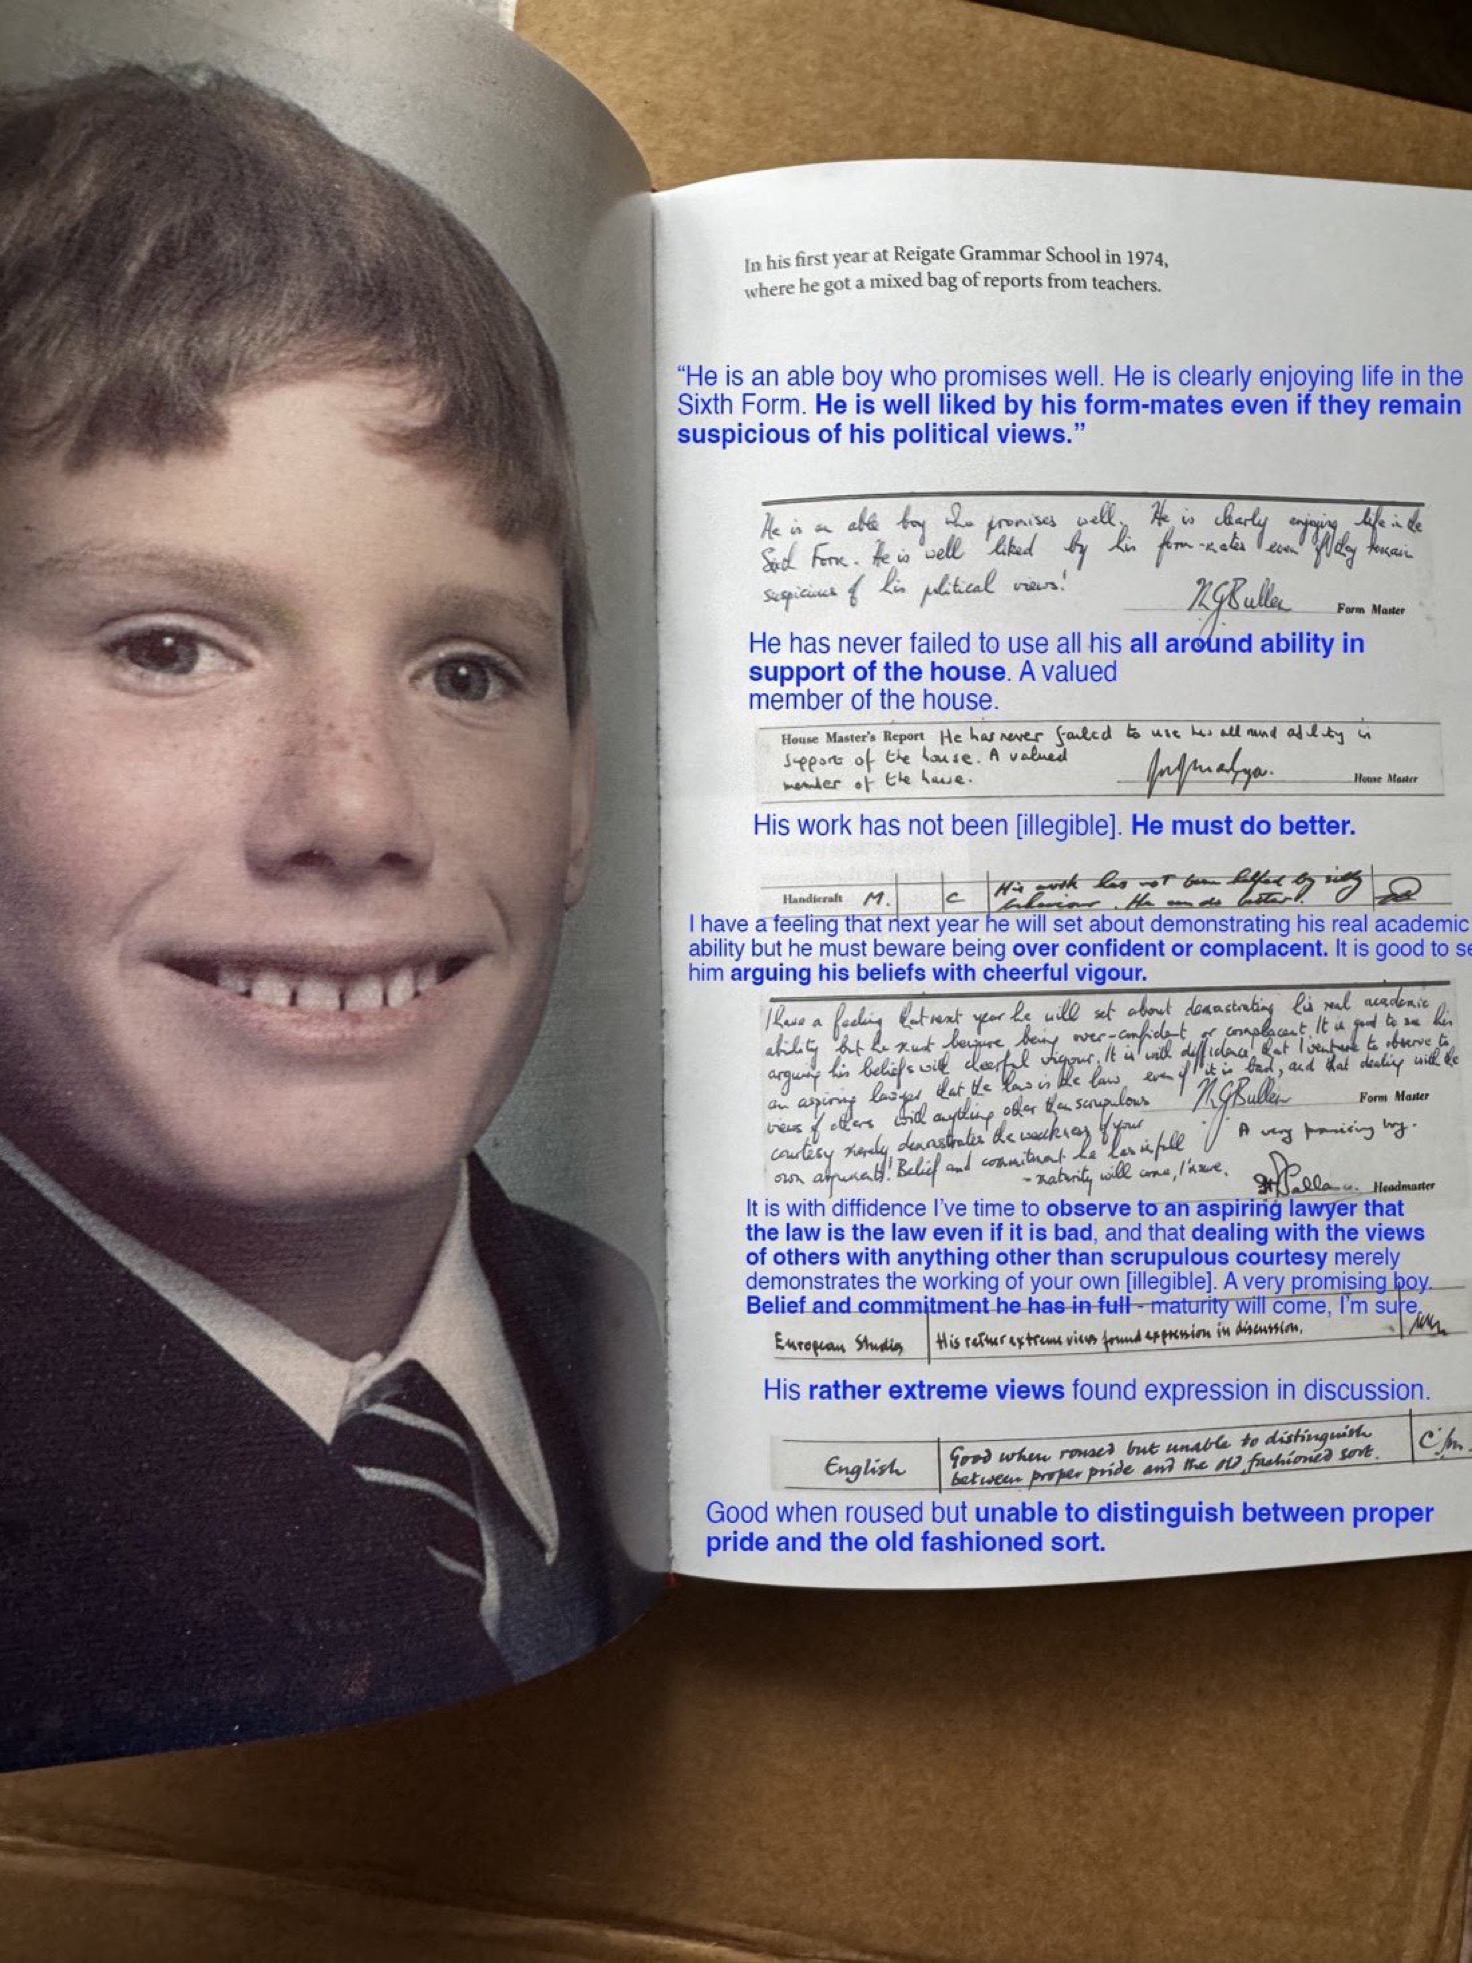 In his first year at Reigate Grammar School in 1974,
where he got a mixed bag of reports from teachers.
“He is an able boy who promises well. He is clearly enjoying life in the
Sixth Form. He is well liked by his form-mates even if they remain
suspicious of his political views.”
He is an able boy who promises well. He is clearly enjoying life in the
Sixth Form. He is well liked by his form-mates even if they remain
suspicious of his political views!
NGBullen Form Master
He has never failed to use all his all around ability in
support of the house. A valued
member of the house.
House Master's Report He has never failed to use his all round ability in
support of the house. A valued
member of the house.
House Master
His work has not been [illegible]. He must do better.
Handicraft M. C His work has not been helped by silly
behaviour. He can do better.
I have a feeling that next year he will set about demonstrating his real academic
ability but he must beware being over confident or complacent. It is good to se
him arguing his beliefs with cheerful vigour.
I have a feeling that next year he will set about demonstrating his real academic
ability but he must beware being over-confident or complacent. It is good to see him
arguing his beliefs with cheerful vigour. It is with diffidence that I venture to observe to
an aspiring lawyer that the law is the law even if it is bad, and that dealing with the
views of others with anything other than scrupulous
NGBullen Form Master
courtesy merely demonstrates the weakness of your
own arguments! Belief and commitment he has in full
- maturity will come, I'm sure.
A very promising boy.
Headmaster
It is with diffidence I’ve time to observe to an aspiring lawyer that
the law is the law even if it is bad, and that dealing with the views
of others with anything other than scrupulous courtesy merely
demonstrates the working of your own [illegible]. A very promising boy.
Belief and commitment he has in full - maturity will come, I’m sure.
European Studies His rather extreme views found expression in discussion.
His rather extreme views found expression in discussion.
English Good when roused but unable to distinguish
between proper pride and the old fashioned sort.
Good when roused but unable to distinguish between proper
pride and the old fashioned sort.